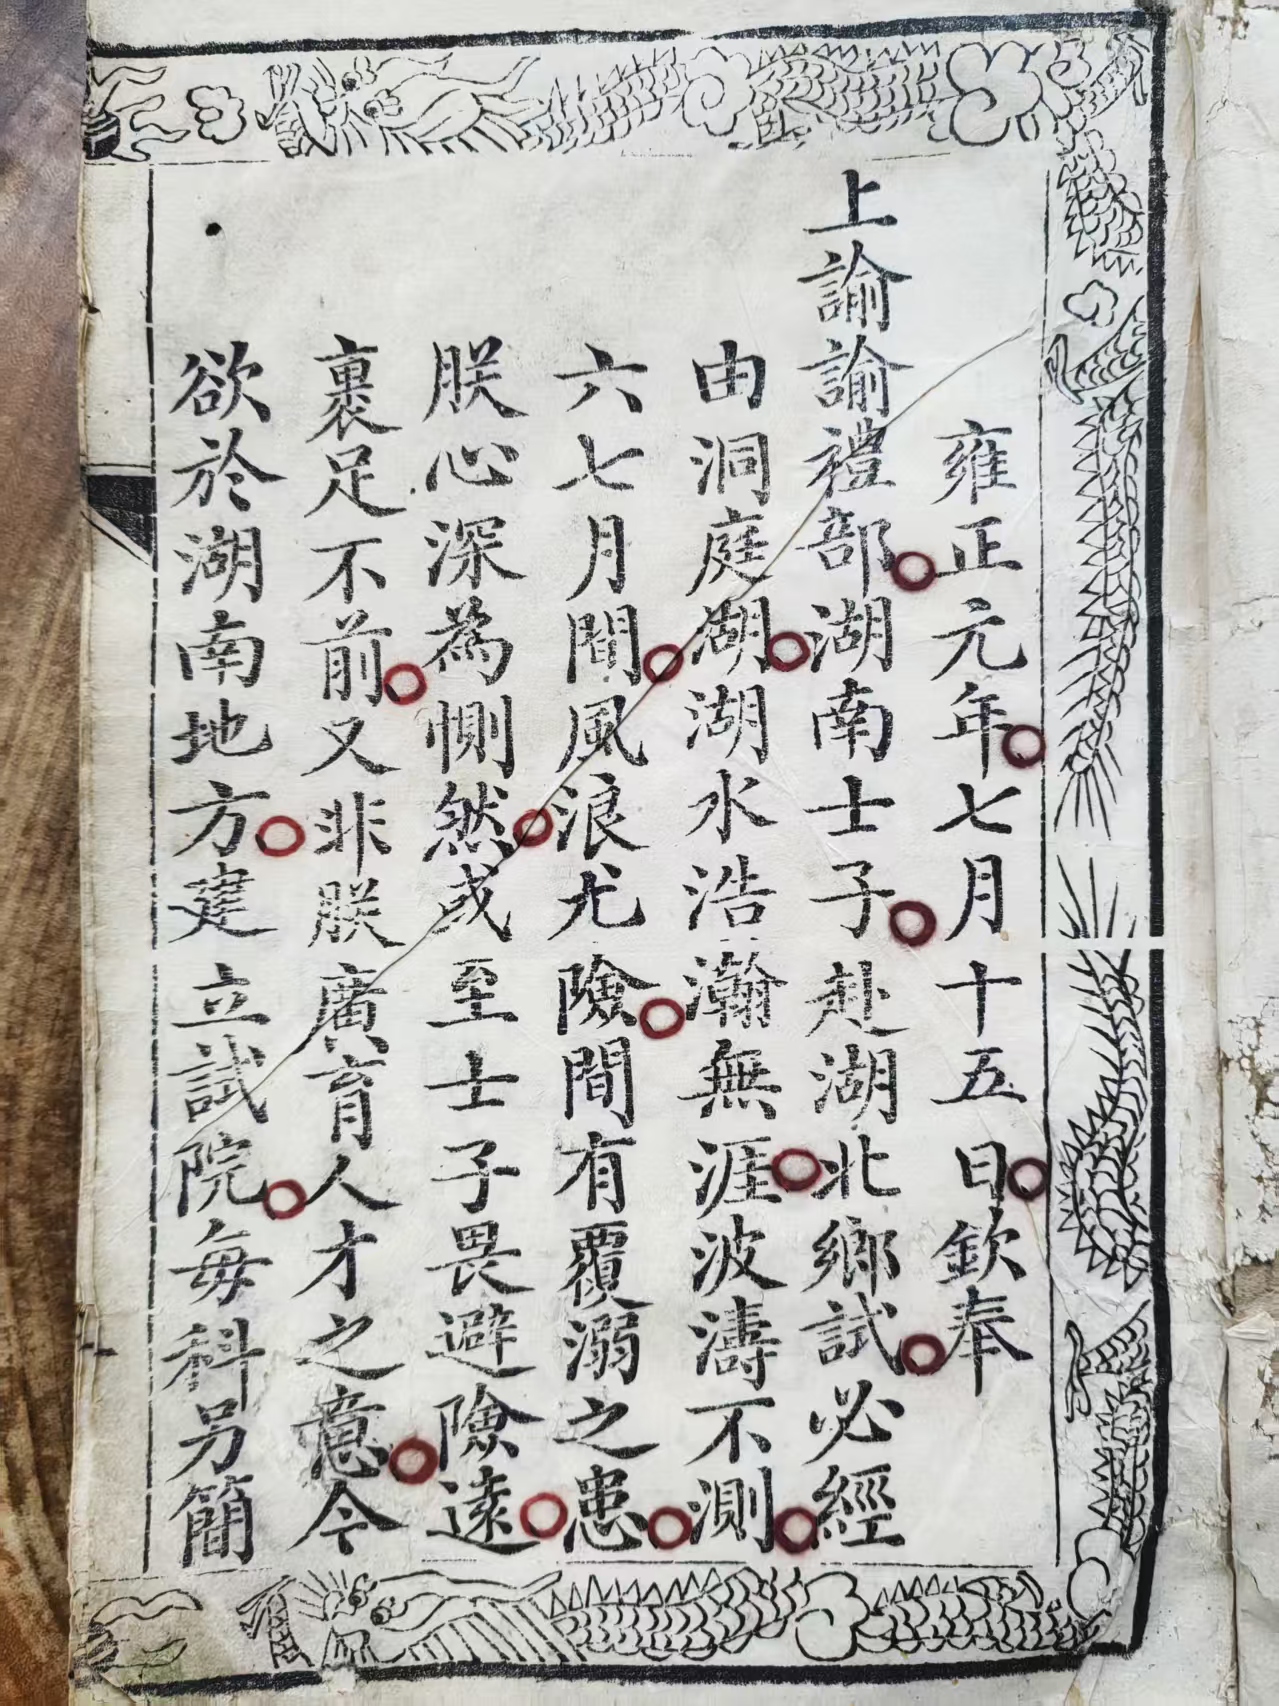 雍正元年七月十五日欽奉
上諭諭禮部湖南士子赴湖北鄉試必經
由洞庭湖湖水浩瀚無涯波濤不測
六七月間風浪尤險間有覆溺之患
朕心深為惻然或至士子畏避險遠
裹足不前又非朕廣育人才之意今
欲於湖南地方建立試院每科另簡